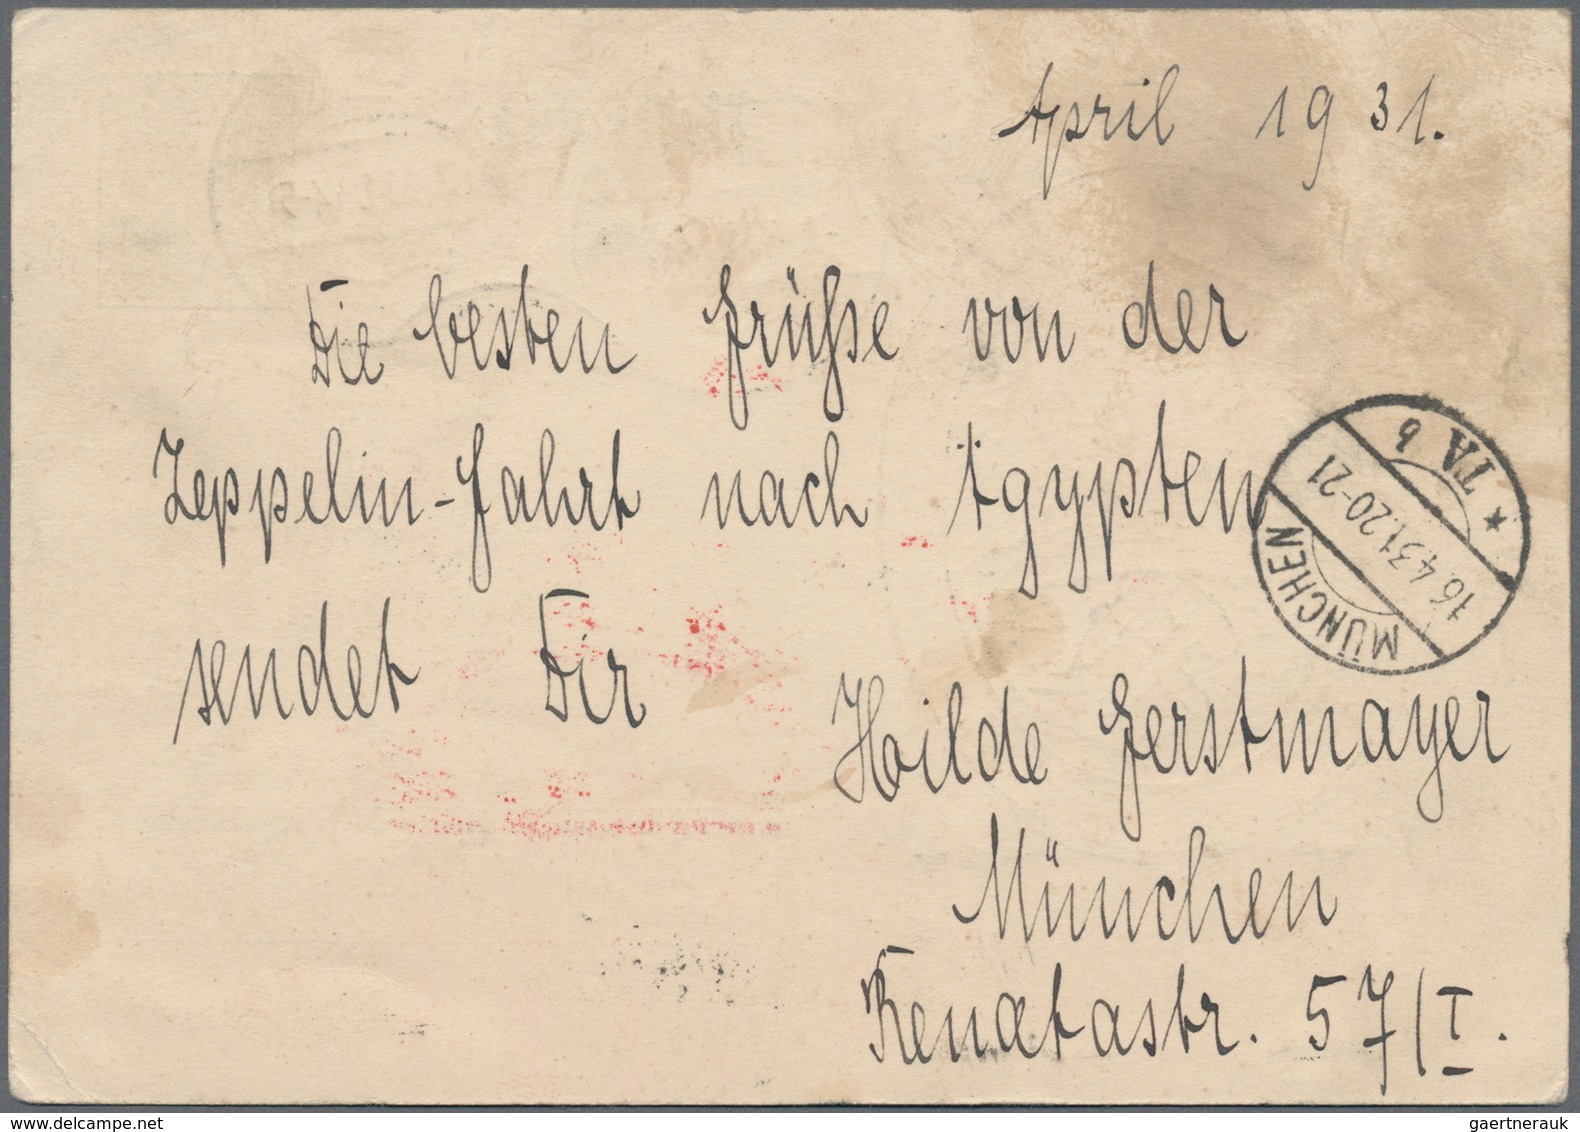 April 1931.
Die besten Grüße von der
Zeppelin-Fahrt nach Ägypten
sendet Dir
Hilde Gerstmayer
München
Renatastr. 57/I.
MÜNCHEN
16.4.31.20-21
* TA b
www.delcampe.net
gaertnerauk